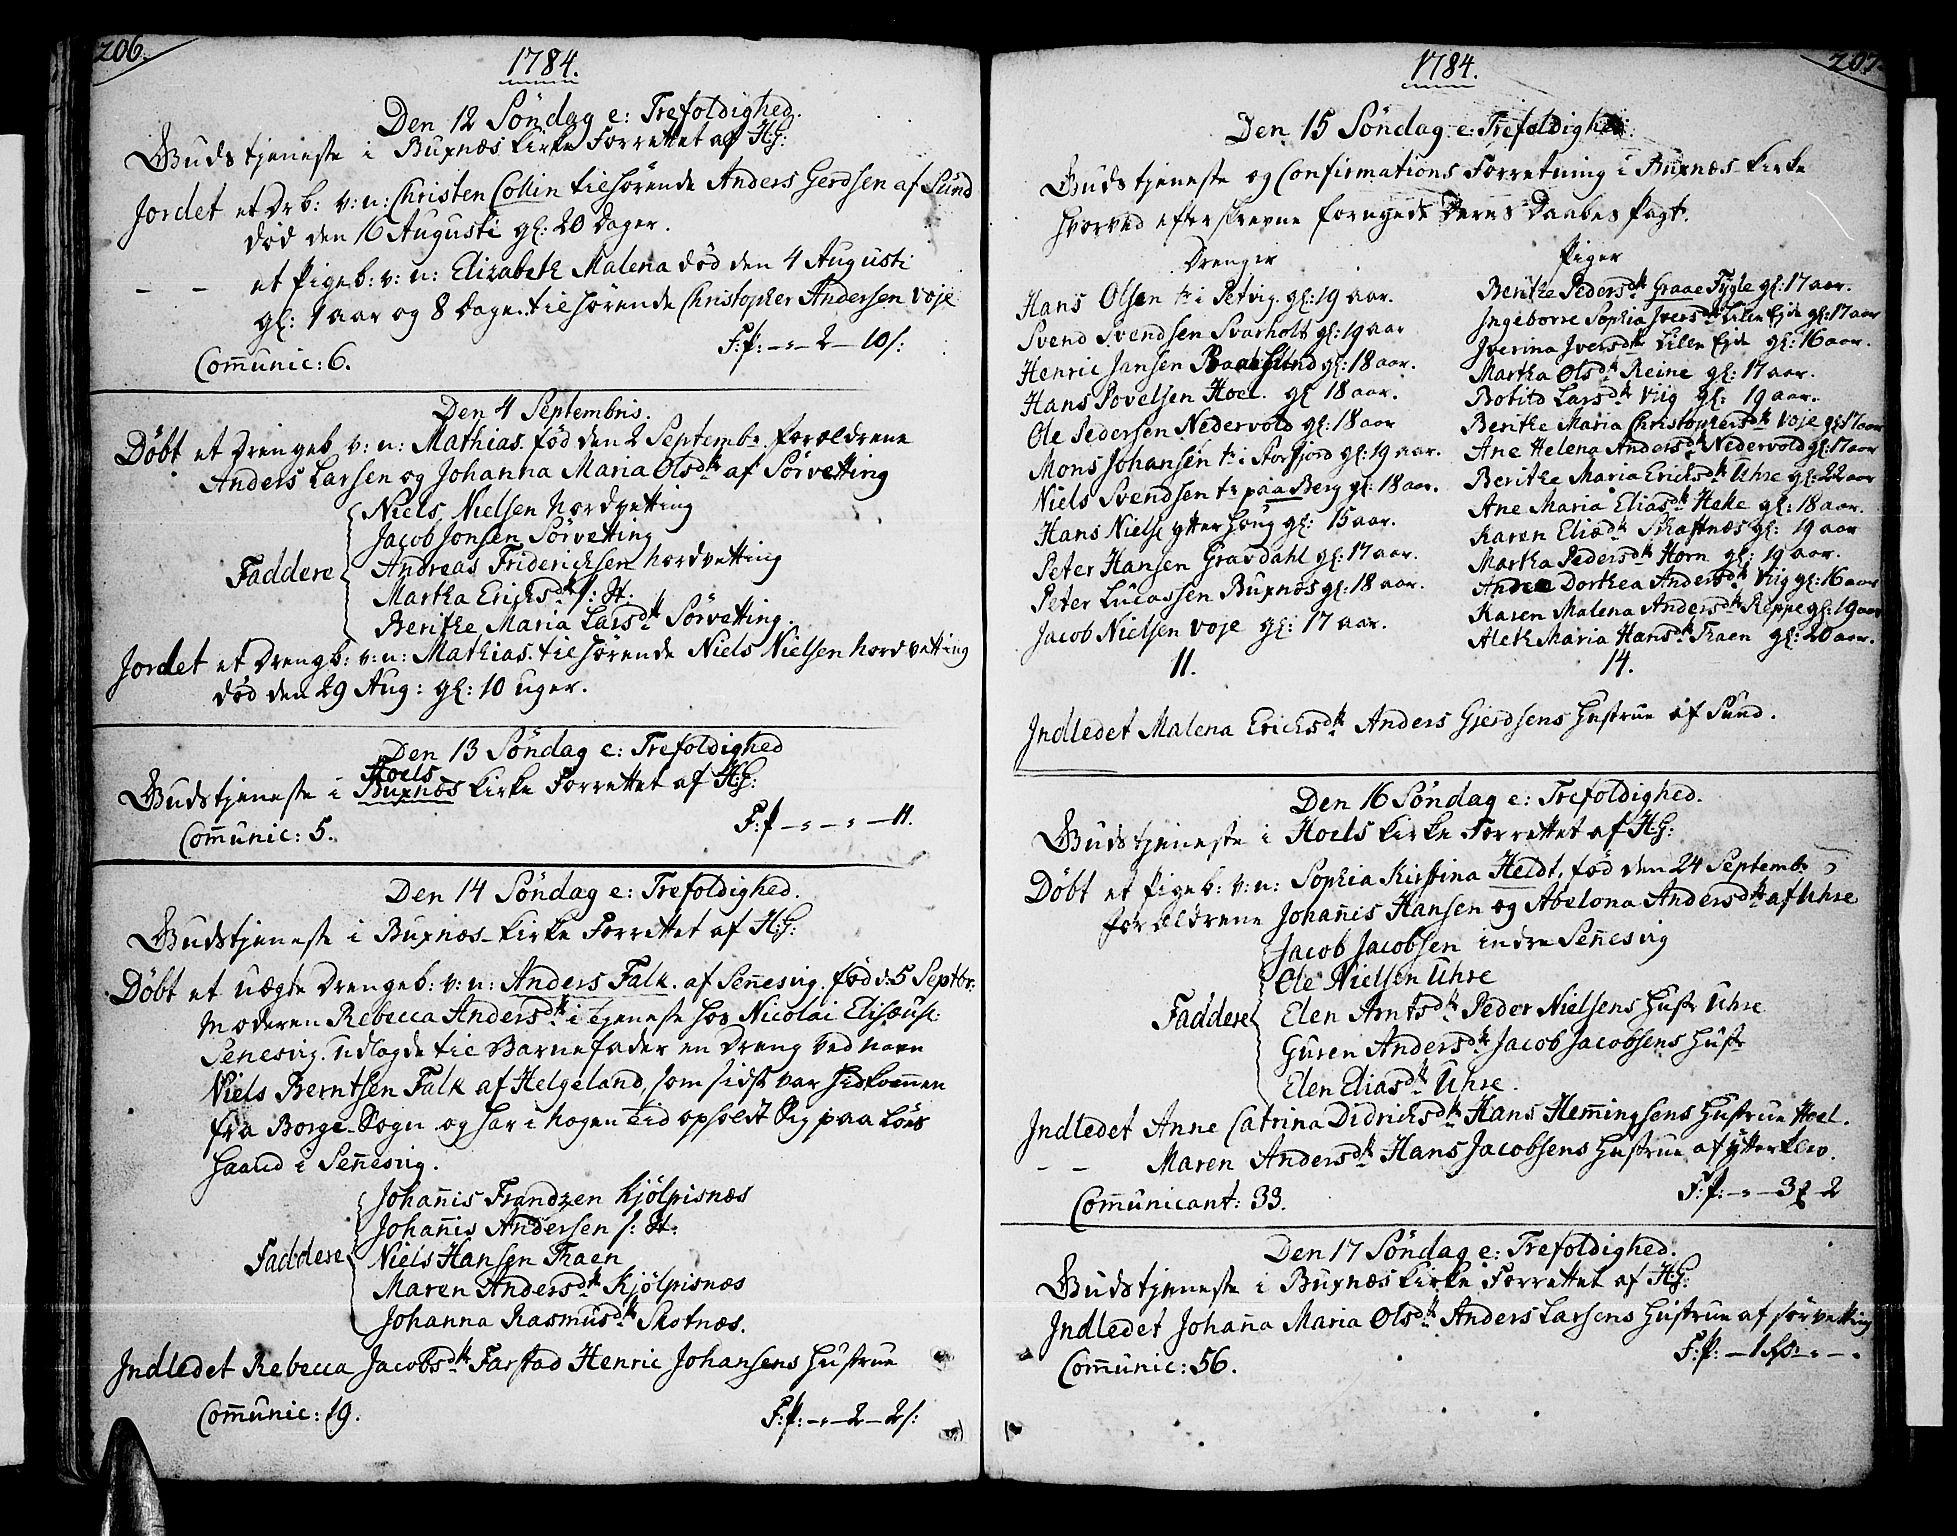 206.
1784.
Den 12 Söndag e: Trefoldighed.
Gudstjeneste i Buxnæs Kirke Forrettet af H:H:
Jordet et Drb: v: n: Christen Collin tilhörende Anders Gerdsen af Sund
död den 16 Augusti gl: 20 Dager.
– – et Pigeb: v: n: Elizabeth Malena död den 4 Augusti
gl: 1 aar og 8 Dage. tilhörende Christopher Andersen Voje
F:f: –"– 2 – 10 s:
Com̄unic: 6.
Den 4 Septembris.
Döbt et Drengeb v: n: Mathias. föd den 2 Septembr. Forældrene
Anders Larsen og Johanna Maria Olsdtr af Sörvetting
Niels Nielsen Nordvetting
Jacob Jonsen Sörvetting
Faddere Andreas Fridericksen Nordvetting
Martha Ericksdtr s: St:
Berithe Maria Larsdtr Sörvetting.
Jordet et Drengb: v: n: Mathias. tilhörende Niels Nielsen Nordvetting
död den 29 Aug: gl: 10 uger.
Den 13 Söndag e: Trefoldighed
Hoels
Gudstjeneste i Buxnæs Kirke Forrettet af H:H:
F:f –"–"– 11.
Com̄unic: 5.
Den 14 Söndag e: Trefoldighed.
Gudstjeneste i Buxnæs Kirke Forrettet af H:H:
Döbt et uægte Drengeb: v: n: Anders Falk. af Sen̄esvig. föd d: 5 Septbr.
Moderen Rebecca Andersdtr i tjeneste hos Nicolai Elisæus:
Senesvig. udlagde til Barnefader en Dreng ved navn
Niels Berntsen Falk af Helgeland, som sidst var hidkom̄en
fra Borge-Sogn og har i nogen Tid opholdt Sig paa Löes
haand i Sen̄esvig.
Johan̄is Frandzen Kjölpisnæs
Johan̄is Andersen s: St:
Faddere Niels Hansen Traen
Maren Andersdtr Kjölpisnæs
Johanna Rasmusdtr Skotnæs.
Indledet Rebecca Jacobsdtr Farstad Henric Johansens Hustrue
Com̄unic: 19.
F:f: –"– 2 – 2 s:
207.
1784.
Den 15 Söndag e: Trefoldighed:
Gudstjeneste og Confirmations Forretning i Buxnæs Kirke
hvorved efterskrevne fornyede Deres Daabes Pagt.
Drenger
Hans Olsen tr i Petvig. gl: 19 aar.
Svend Svendsen Svarholt gl: 19 aar
Henric Jansen gl: 18 aar.
Hans Povelsen Hoel. gl 18 aar.
Ole Pedersen Nedervold gl: 18 aar
Mons Johansen tr i Storfjord gl: 19 aar.
Niels Svendsen tr paa Berg gl: 18 aar.
Hans Niels: ytterhoug gl: 15 aar.
Peter Hansen Gravdahl gl: 17 aar.
Peter Lucassen Buxnæs gl: 18 aar.
Jacob Nielsen Voje gl: 17 aar.
11.
Piger
Berithe Pedersdtr Graae Fygle gl: 17 aar.
Ingeborre Sophia Iversdtr Lille Ejde gl: 17 aar
Iverina Iversdtr Lille Ejde gl: 16 aar.
Martha Olsdtr Reine gl: 17 aar.
Botild Larsdtr Viig gl: 19 aar.
Berithe Maria Christophersdtr Voje gl: 17 aar
Ane Helena Andersdtr Nedervold gl: 17 aar
Berithe Maria Ericksdtr Uhre gl: 22 aar
Ane Maria Eliasdtr Hæke gl: 18 aar.
Karen Eliædtr Skaftnæs gl: 19 aar
Martha Pedersdtr Horn gl: 19 aar.
Dorthea Andersdtr Viig gl: 16 aar
Karen Malena Andersdtr Reppe gl: 19 aar
Aleth Maria Hansdtr Traen gl: 20 aar.
14.
Indledet Malena Ericksdtr Anders Gjerdsens Hustrue af Sund.
Den 16 Söndag e: Trefoldighed.
Gudstjeneste i Hoels Kirke Forrettet af H:H:
Döbt et Pigeb: v: n: Sophia Kirstina Heldt, föd den 24 Septembr.
Forældrene Johan̄is Hansen og Abelona Andersdtr af Uhre
Jacob Jacobsen indre Sen̄esvig
Ole Nielsen Uhre
Faddere Elen Arntsdtr Peder Nielsens Hustr Uhre
Guren Andersdtr Jacob Jacobsens Hustr
Elen Eliasdtr Uhre.
Indledet Anne Catrina Didricksdtr Hans Hem̄ingsens Hustrue Hoel.
– – Maren Andersdtr Hans Jacobsens Hustrue af ytterklev.
F:f: –"– 3 – 2
Com̄unicant: 33.
Den 17 Söndag e: Trefoldighed.
Gudstjeneste i Buxnæs Kirke Forrettet af H:H:
Indledet Johan̄a Maria Olsdtr Anders Larsens Hustrue af Sörvetting
Com̄unic: 56.